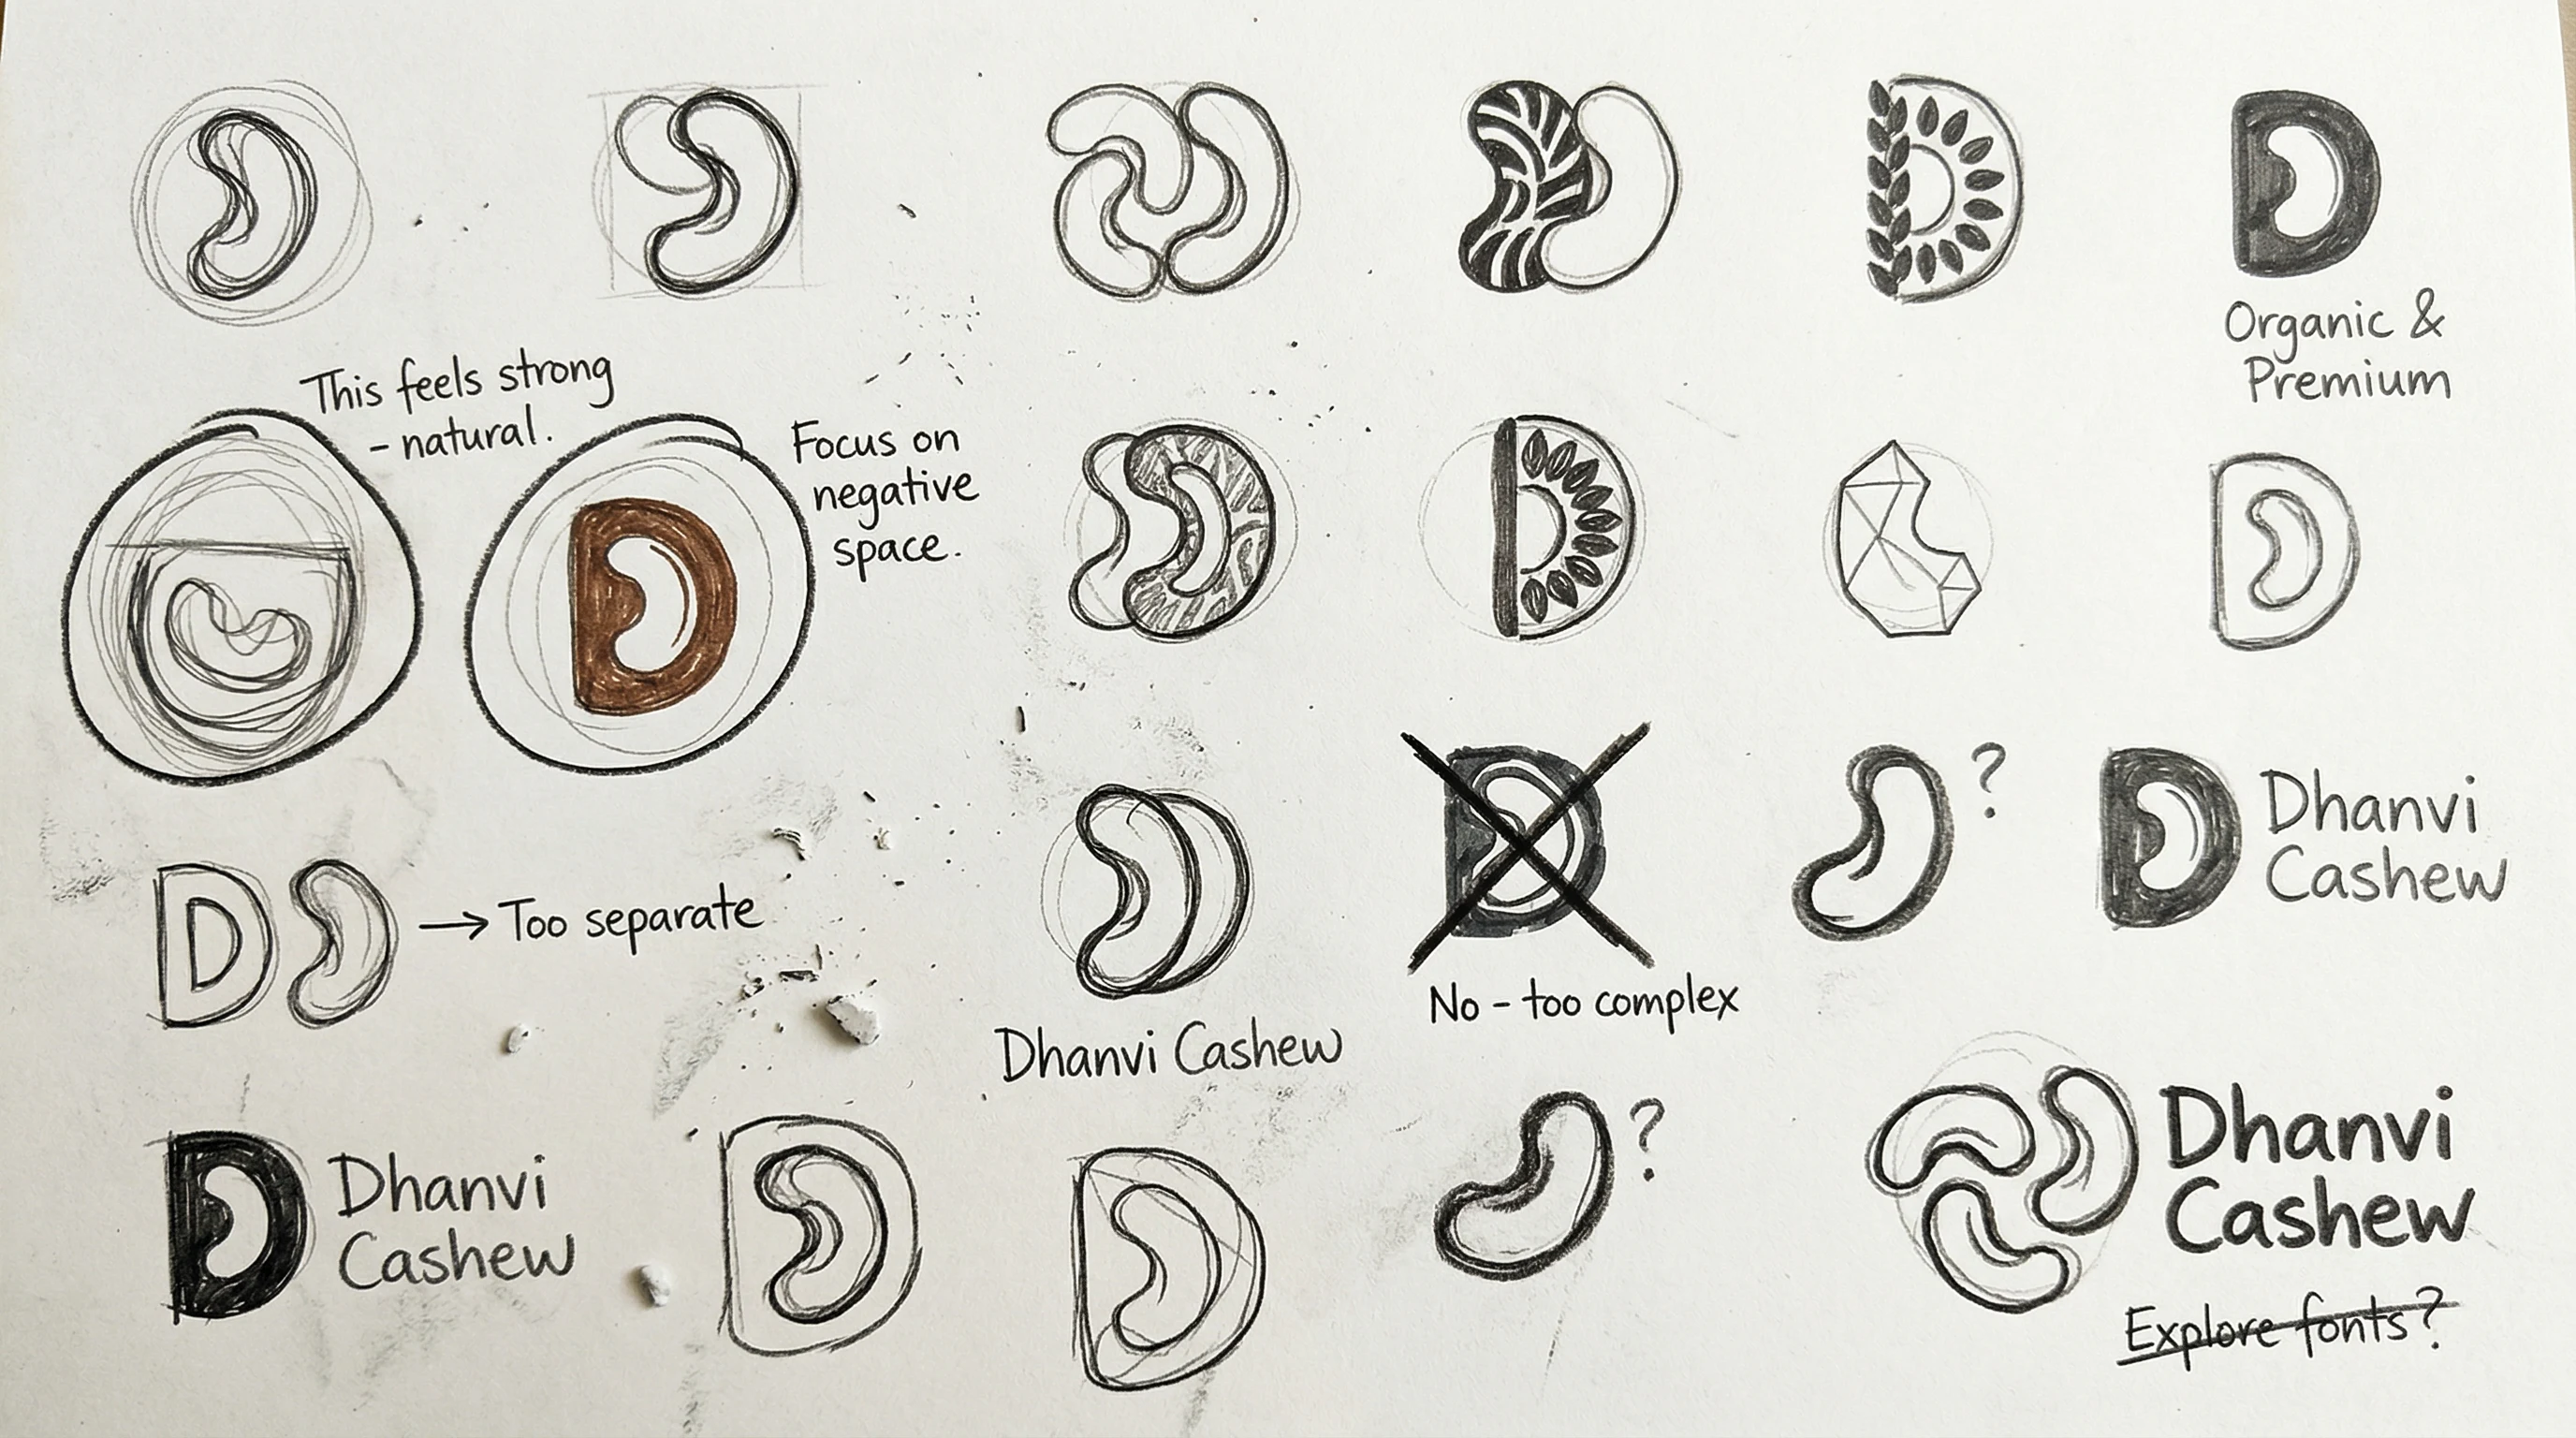 Organic &
Premium
This feels strong
- natural.
Focus on
negative
space.
Dhanvi
Cashew
D → Too separate
No - too complex
Dhanvi Cashew
Dhanvi
Cashew
Dhanvi
Cashew
Explore fonts?